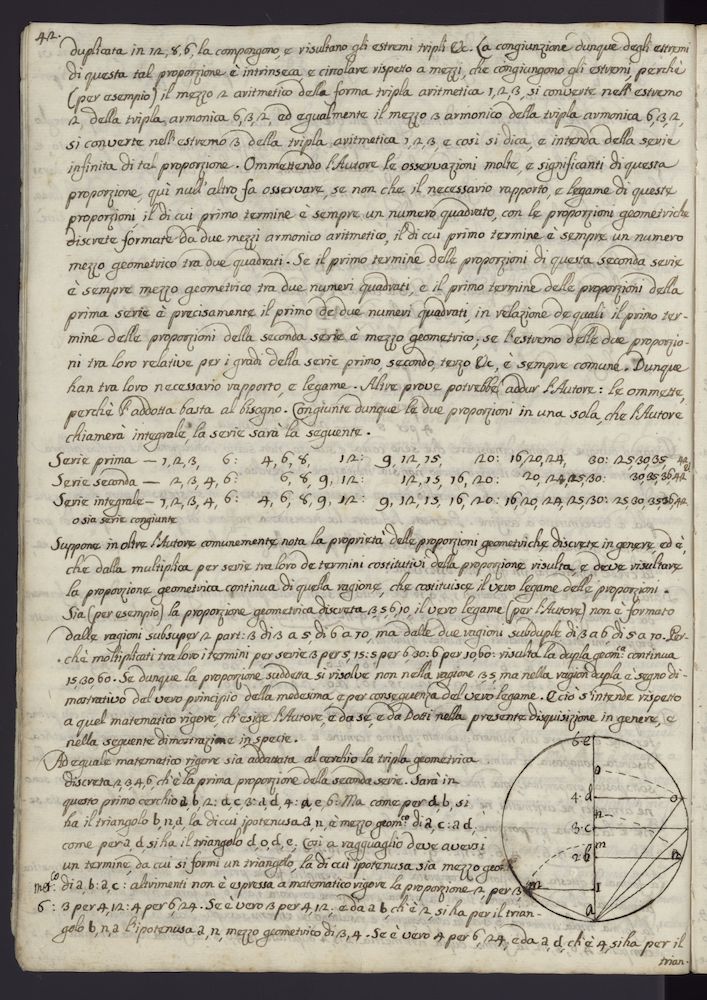 42.
duplicata in 12, 8, 6, la compongono, e risultano gli estremi tripli &c. La congiunzione dunque degli estremi
di questa tal proporzione è intrinseca, e circolare rispetto a mezzi, che congiungono gli estremi, perchè
(per esempio) il mezzo 2 aritmetico della forma tripla aritmetica 1, 2, 3, si converte nell'estremo
2, della tripla armonica 6, 3, 2, ed egualmente il mezzo 3 armonico della tripla armonica 6, 3, 2,
si converte nell'estremo 3 della tripla aritmetica 1, 2, 3, e così si dica, e intenda della serie
infinita di tal proporzione. Ommettendo l'Autore le osservazioni molte, e significanti di questa
proporzione, quì null'altro fa osservare, se non che il necessario rapporto, e legame di queste
proporzioni, il di cui primo termine è sempre un numero quadrato, con le proporzioni geometriche
discrete formate da due mezzi armonico aritmetico, il di cui primo termine è sempre un numero
mezzo geometrico tra due quadrati. Se il primo termine delle proporzioni di questa seconda serie
è sempre mezzo geometrico tra due numeri quadrati, e il primo termine delle proporzioni della
prima serie è precisamente il primo de' due numeri quadrati, in relazione de quali il primo ter-
mine delle proporzioni della seconda serie è mezzo geometrico; se l'estremo delle due proporzio-
ni tra loro relative per i gradi della serie primo, secondo, terzo &c, è sempre comune. Dunque
han tra loro necessario rapporto, e legame. Altre prove potrebbe addur l'Autore: le ommette,
perchè l'addotta basta al bisogno. Congiunte dunque le due proporzioni in una sola, che l'Autore
chiamerà integrale, la serie sarà la seguente.
Serie prima — 1, 2, 3, 6: 4, 6, 8, 12: 9, 12, 15, 20: 16, 20, 24, 30: 25, 30, 35, 42
Serie seconda — 2, 3, 4, 6: 6, 8, 9, 12: 12, 15, 16, 20: 20, 24, 25, 30: 30, 35, 36, 42
Serie integrale — 1, 2, 3, 4, 6: 4, 6, 8, 9, 12: 9, 12, 15, 16, 20: 16, 20, 24, 25, 30: 25, 30, 35, 36, 42
o sia serie congiunte
Suppone in oltre l'Autore comunemente nota la proprietà delle proporzioni geometriche discrete in genere, ed è
che dalla multiplica per serie tra loro de termini costitutivi della proporzione risulta, e deve risultare
la proporzione geometrica continua di quella ragione, che costituisce il vero legame delle proporzioni.
Sia (per esempio) la proporzione geometrica discreta 3, 5, 6, 10, il vero legame (per l'Autore) non è formato
dalle ragioni subsuper 2 part: 3 di 3 a 5, di 6 a 10, ma dalle due ragioni subduple di 3 a 6 di 5 a 10. Per-
chè moltiplicati tra loro i termini per serie 3 per 5, 15: 5 per 6, 30: 6 per 10, 60: risulta la dupla geom:ca continua
15, 30, 60. Se dunque la proporzione suddetta si risolve non nella ragione 3, 5 ma nella ragion dupla è segno di-
mostrativo del vero principio della medesima, e per conseguenza del vero legame. E ciò s'intende rispetto
a quel matematico rigore, ch'esige l'Autore, e da se, e da Dotti nella presente disquisizione in genere, e
nella seguente dimostrazione in specie.
Ad equale matematico rigore sia addattata al cerchio la tripla geometrica
discreta, 2, 3, 4, 6, ch'è la prima proporzione della seconda serie. Sarà in
questo primo cerchio a, b, 2: a, c, 3: a, d, 4: a, e, 6: Ma come per a, b, si
ha il triangolo b, n, a, la di cui ipotenusa a, n, è mezzo geom:co di a, c: a, d,
come per a, d, si ha il triangolo d, o, d, e, Così a ragguaglio deve aversi
un termine, da cui si formi un triangolo, la di cui ipotenusa sia mezzo geo-
met:co di a, b: a, c: altrimenti non è espressa a matematico rigore la proporzione. 2 per 3
6: 3 per 4, 12: 4 per 6, 24. Se è vero 3 per 4, 12, e da a b, ch'è 2, si ha per il trian-
golo b, n, a l'ipotenusa a, n, mezzo geometrico di 3, 4. Se è vero 4 per 6, 24, e da a, d, ch'è 4, si ha per il
trian-
6. e
4. d
o
n
3. c
m
2. b
n
m
1
a